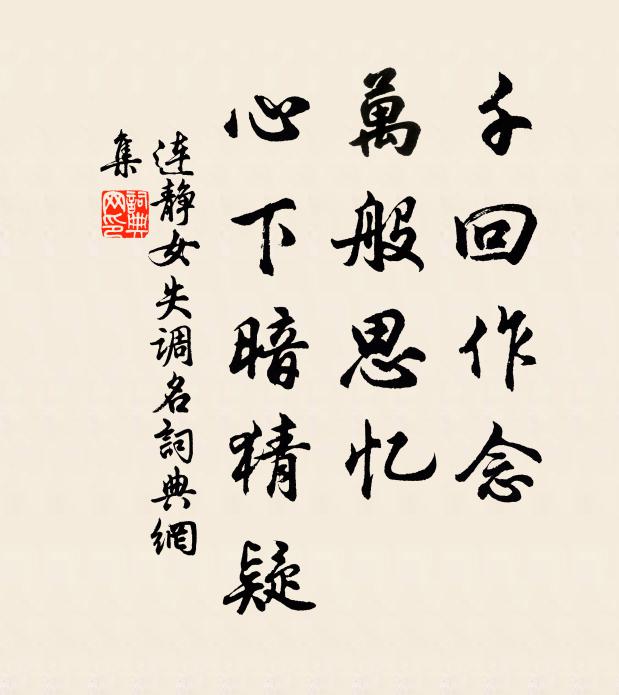 千回作念
萬般思忆
心下暗猜疑
连静女失调名詞典網
集
詞典
网印